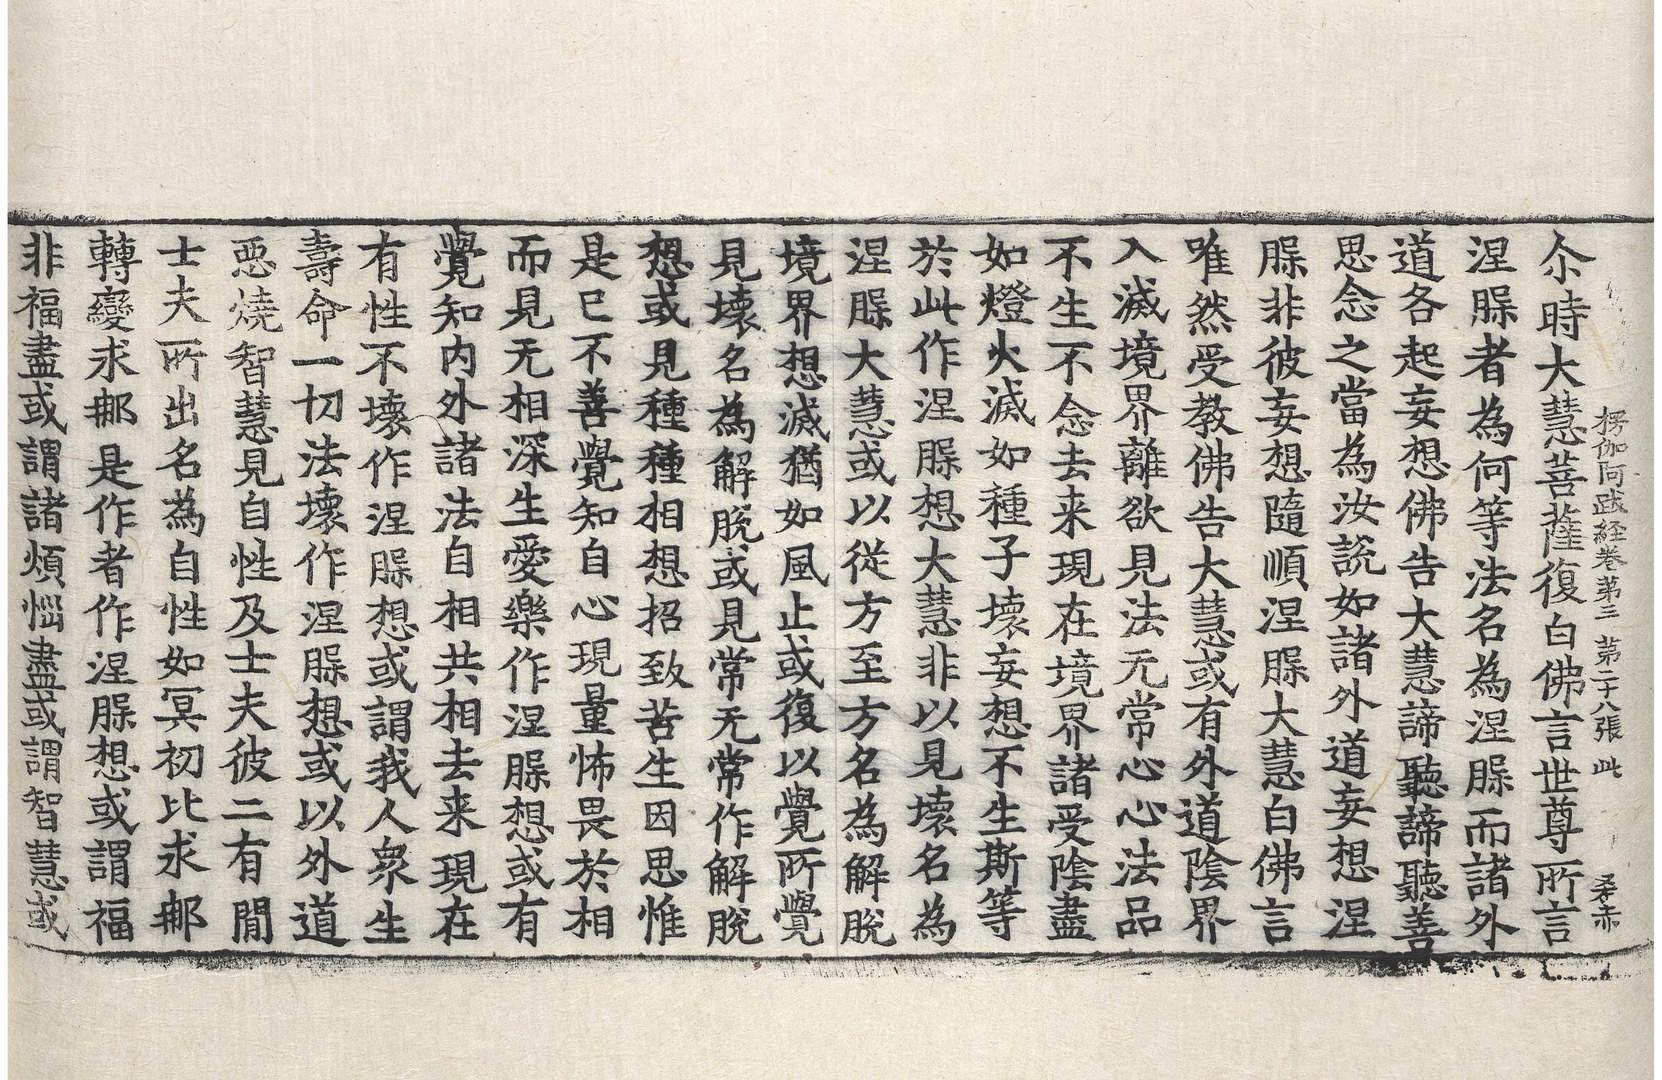 楞伽阿跋経卷第三　第二十八張　此
尒時大慧菩薩復白佛言世尊所言
涅槃者為何等法名為涅槃而諸外
道各起妄想佛告大慧諦聽諦聽善
思念之當為汝說如諸外道妄想涅
槃非彼妄想隨順涅槃大慧白佛言
唯然受教佛告大慧或有外道陰界
入滅境界離欲見法无常心心法品
不生不念去来現在境界諸受陰盡
如燈火滅如種子壞妄想不生斯等
於此作涅槃想大慧非以見壞名為
涅槃大慧或以從方至方名為解脫
境界想滅猶如風止或復以覺所覺
見壞名為解脫或見常无常作解脫
想或見種種相想招致苦生因思惟
是已不善覺知自心現量怖畏於相
而見无相深生愛樂作涅槃想或有
覺知内外諸法自相共相去来現在
有性不壞作涅槃想或謂我人衆生
壽命一切法壞作涅槃想或以外道
惡燒智慧見自性及士夫彼二有間
士夫所出名為自性如冥初比求那
轉變求那是作者作涅槃想或謂福
非福盡或謂諸煩惱盡或謂智慧或